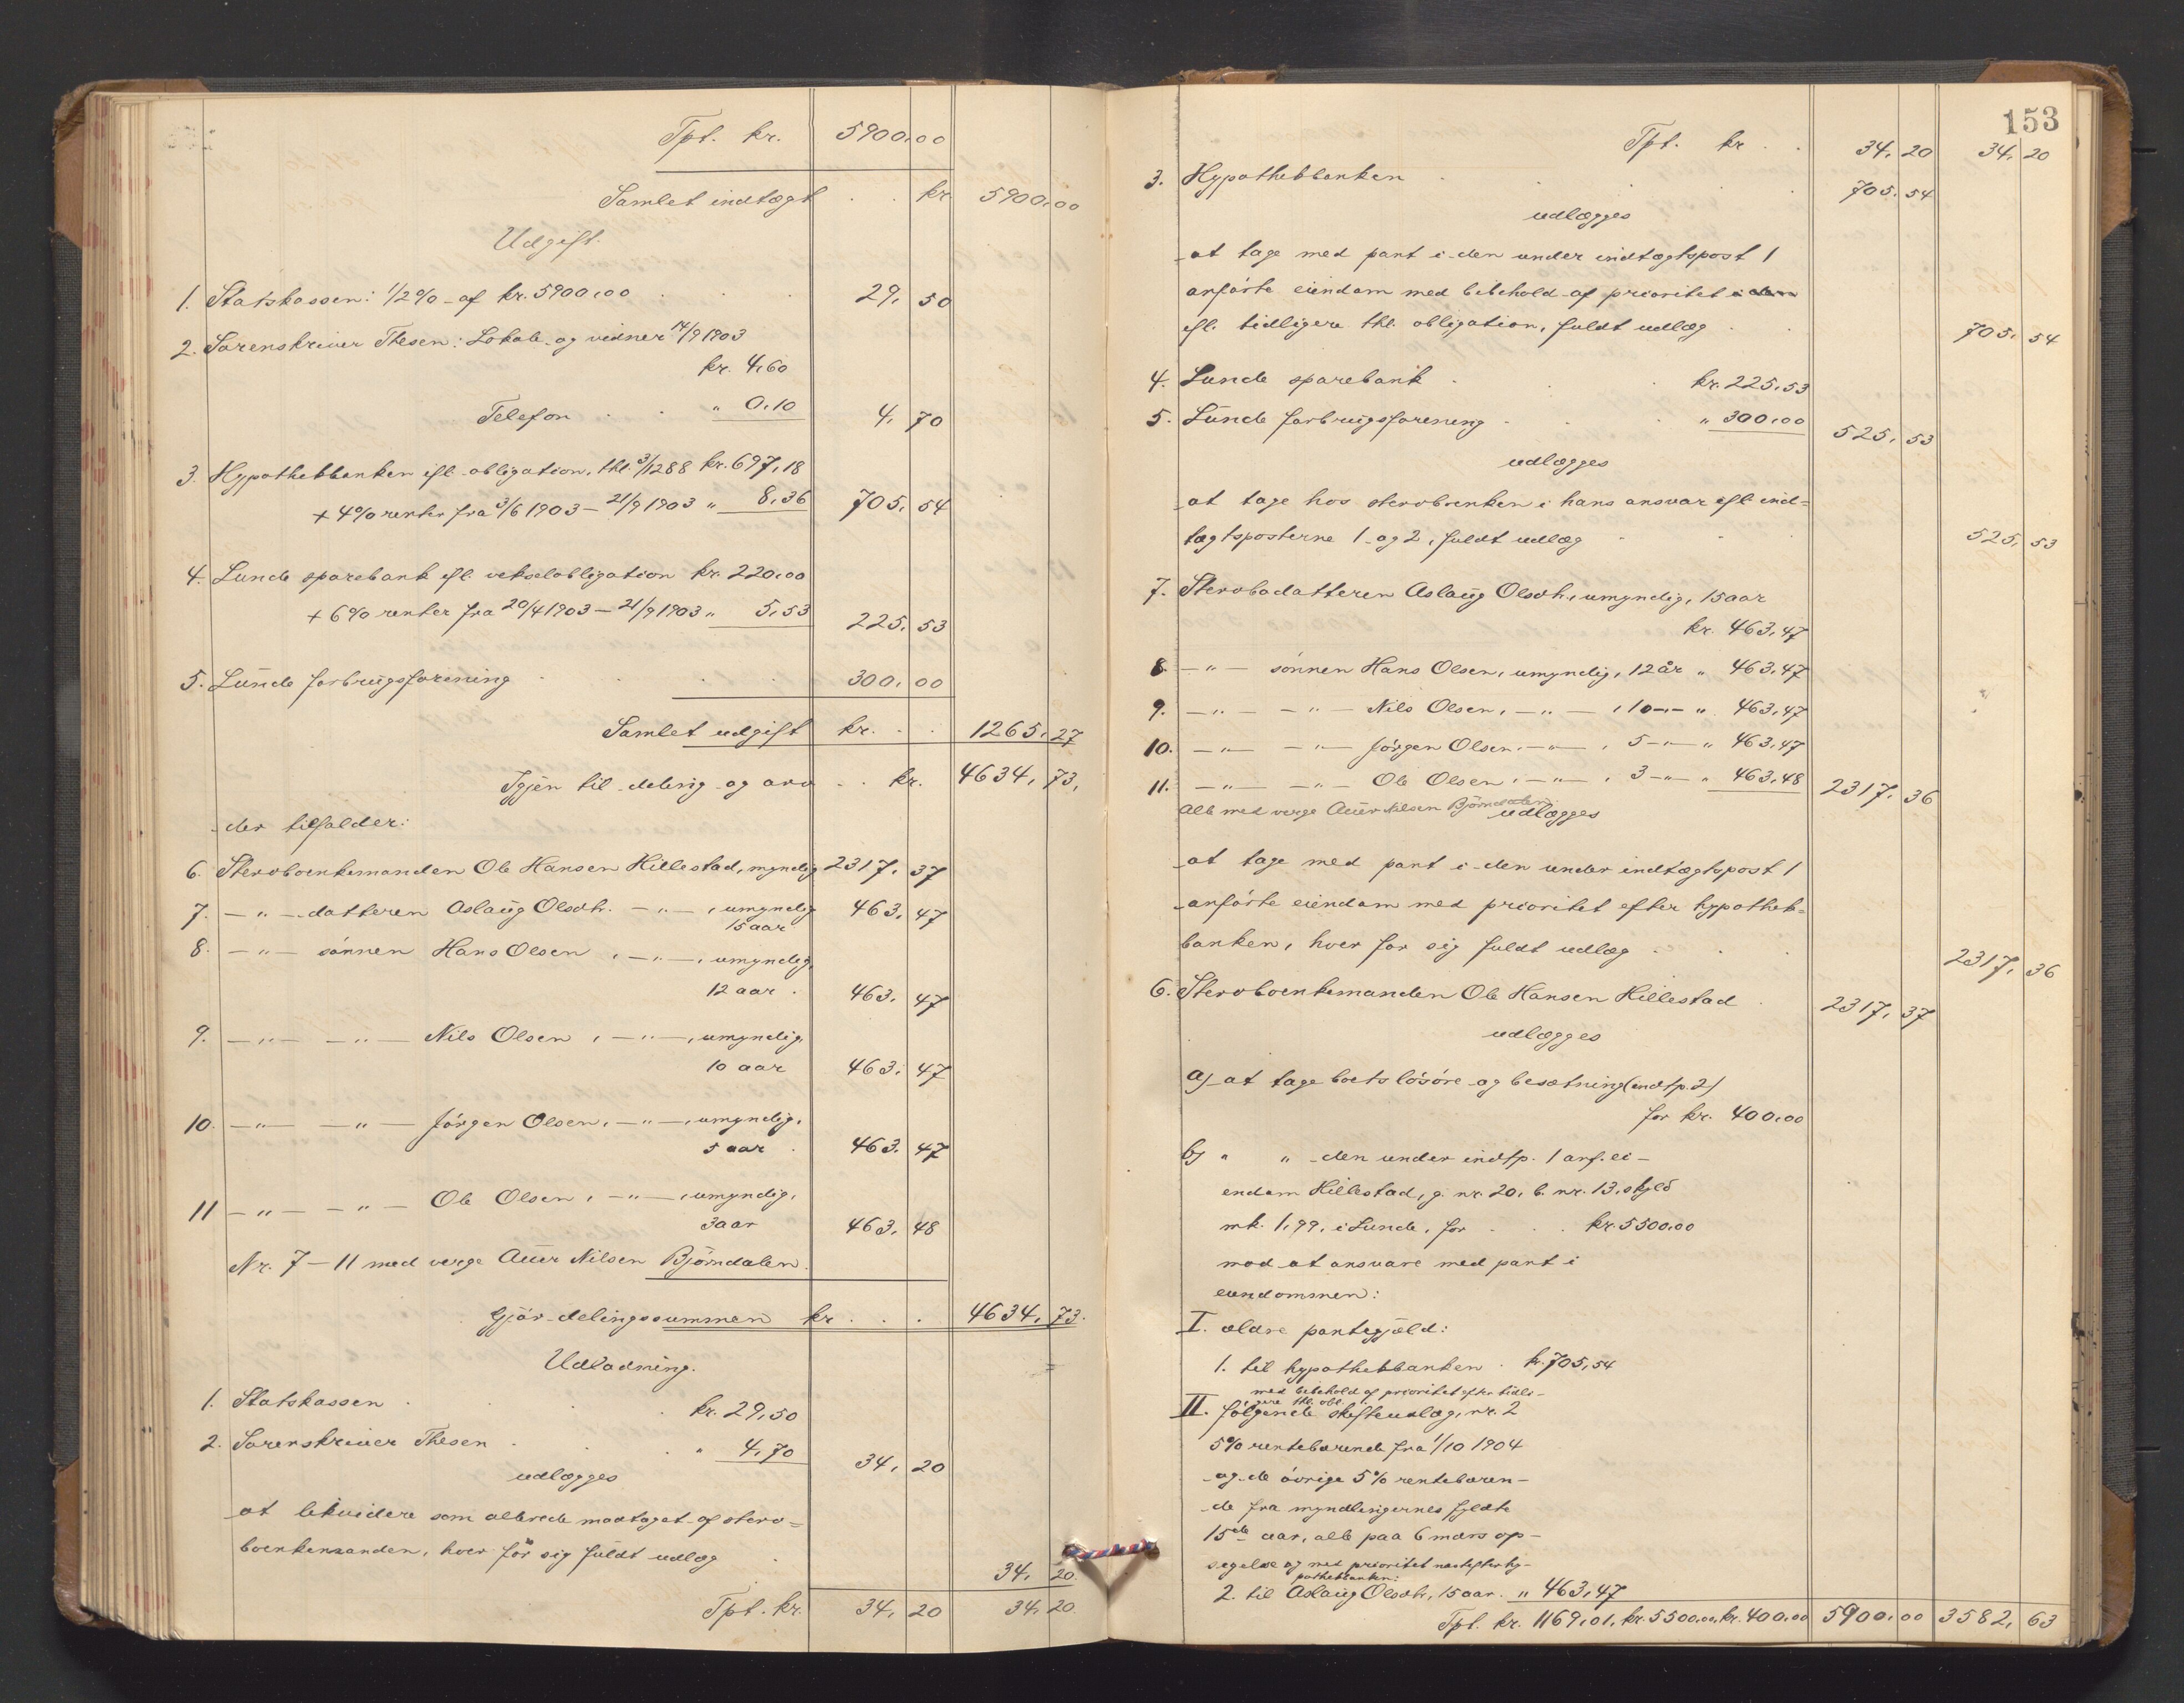 Tpt. kr. 5900,00
Samlet indtægt . . kr. 5900,00
Udgift.
1. Statskassen: 1/2% af kr. 5900,00 . . . 29,50
2. Sorenskriver Thesen: Lokale og vidner 14/9 1903
kr. 4,60
Telefon . . " 0,10 4,70
3. Hypothekbanken efl. obligation, thl. 3/12 88 kr. 697,18
+ 4% renter fra 3/6 1903 – 21/9 1903 " 8,36 705,54
4. Lunde sparebank efl. vekselobligation kr. 220,00
+ 6% renter fra 20/4 1903 – 21/9 1903 " 5,53 225,53
5. Lunde forbrugsforening . . . 300,00
Samlet udgift kr. . . 1265,27
Igjen til deling og arv . . kr. 4634,73,
der tilfalder:
6. Stervboenkemanden Ole Hansen Hillestad, myndig 2317,37
7. – " – datteren Aslaug Olsdtr. – " –, umyndig 463,47
15 aar
8. – " – sønnen Hans Olsen, – " –, umyndig,
12 aar . 463,47
9. – " – – " – Nils Olsen, – " –, umyndig,
10 aar 463,47
10. – " – – " – Jørgen Olsen, – " –, umyndig,
5 aar . 463,47
11 – " – – " – Ole Olsen, – " –, umyndig,
3 aar 463,48
Nr. 7 – 11 med verge Auver Nilsen Bjørndalen.
Gjør delingssummen kr . . . 4634,73.
Udlodning.
1. Statskassen . . . kr. 29,50
2. Sorenskriver Thesen . . . " 4,70 34,20
udlægges
at likvidere som allerede modtaget af sterv=
boenkemanden, hver for sig fuldt udlæg . 34,20.
Tpt. kr. 34,20 34,20.
153
Tpt. kr . . 34,20 34,20
3. Hypothekbanken . . . . 705,54
udlægges
at tage med pant i den under indtægtspost 1
anførte eiendom med bibehold af prioritet
efl. tidligere thl. obligation, fuldt udlæg . . 705,54
4. Lunde sparebank . . . kr. 225,53
5. Lunde forbrugsforening . . . " 300,00 525,53
udlægges
at tage hos stervboenken i hans ansvar efl. ind=
tægtsposterne 1 og 2, fuldt udlæg . . . 525,53
7. Stervbodatteren Aslaug Olsdtr., umyndig, 15 aar
kr. 463,47
8. – " – sønnen Hans Olsen, umyndig, 12 år " 463,47
9. – " – – " – Nils Olsen, – " –, 10 – " – " 463,47
10. – " – – " – Jørgen Olsen, – " –, 5 – " – " 463,47
11. – " – – " – Ole Olsen, – " –, 3 – " – " 463,48 2317,36
alle med verge Auver Nilsen Bjørndalen
udlægges
at tage med pant i den under indtægtspost 1
anførte eiendom med prioritet efter hypothek=
banken, hver for sig fuldt udlæg . . . 2317,36
6. Stervboenkemanden Ole Hansen Hillestad . 2317,37
udlægges
a) at tage boets løsøre og besætning (indtp. 2)
for kr. 400,00
b) " " den under indtp. 1 anf. ei-
endom Hillestad, g. nr. 20, b. nr. 13, skyld
mk. 1,99, i Lunde, for . . . kr. 5500,00
mod at ansvare med pant i
eiendommen:
I. ældre pantegjæld:
1. til hypothekbanken . kr. 705,54
med bibehold af prioritet efter tidli-
gere thl. obl.
II. følgende skifteudlæg, nr. 2
5% rentebærende fra 1/10 1904
og de øvrige 5% rentebæren-
de fra myndlingernes fyldte
15de aar, alle paa 6 mdrs op-
sigelse og med prioritet næstefter hy-
pothekbanken:
2. til Aslaug Olsdtr., 15 aar. " 463,47
Tpt. kr. 1169,01, kr. 5500,00, kr. 400,00 5900,00 3582,63